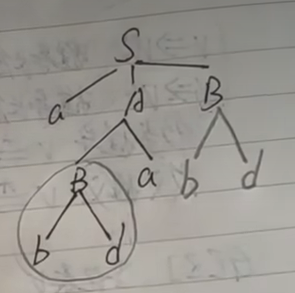 S
a A B
B a b d
b d